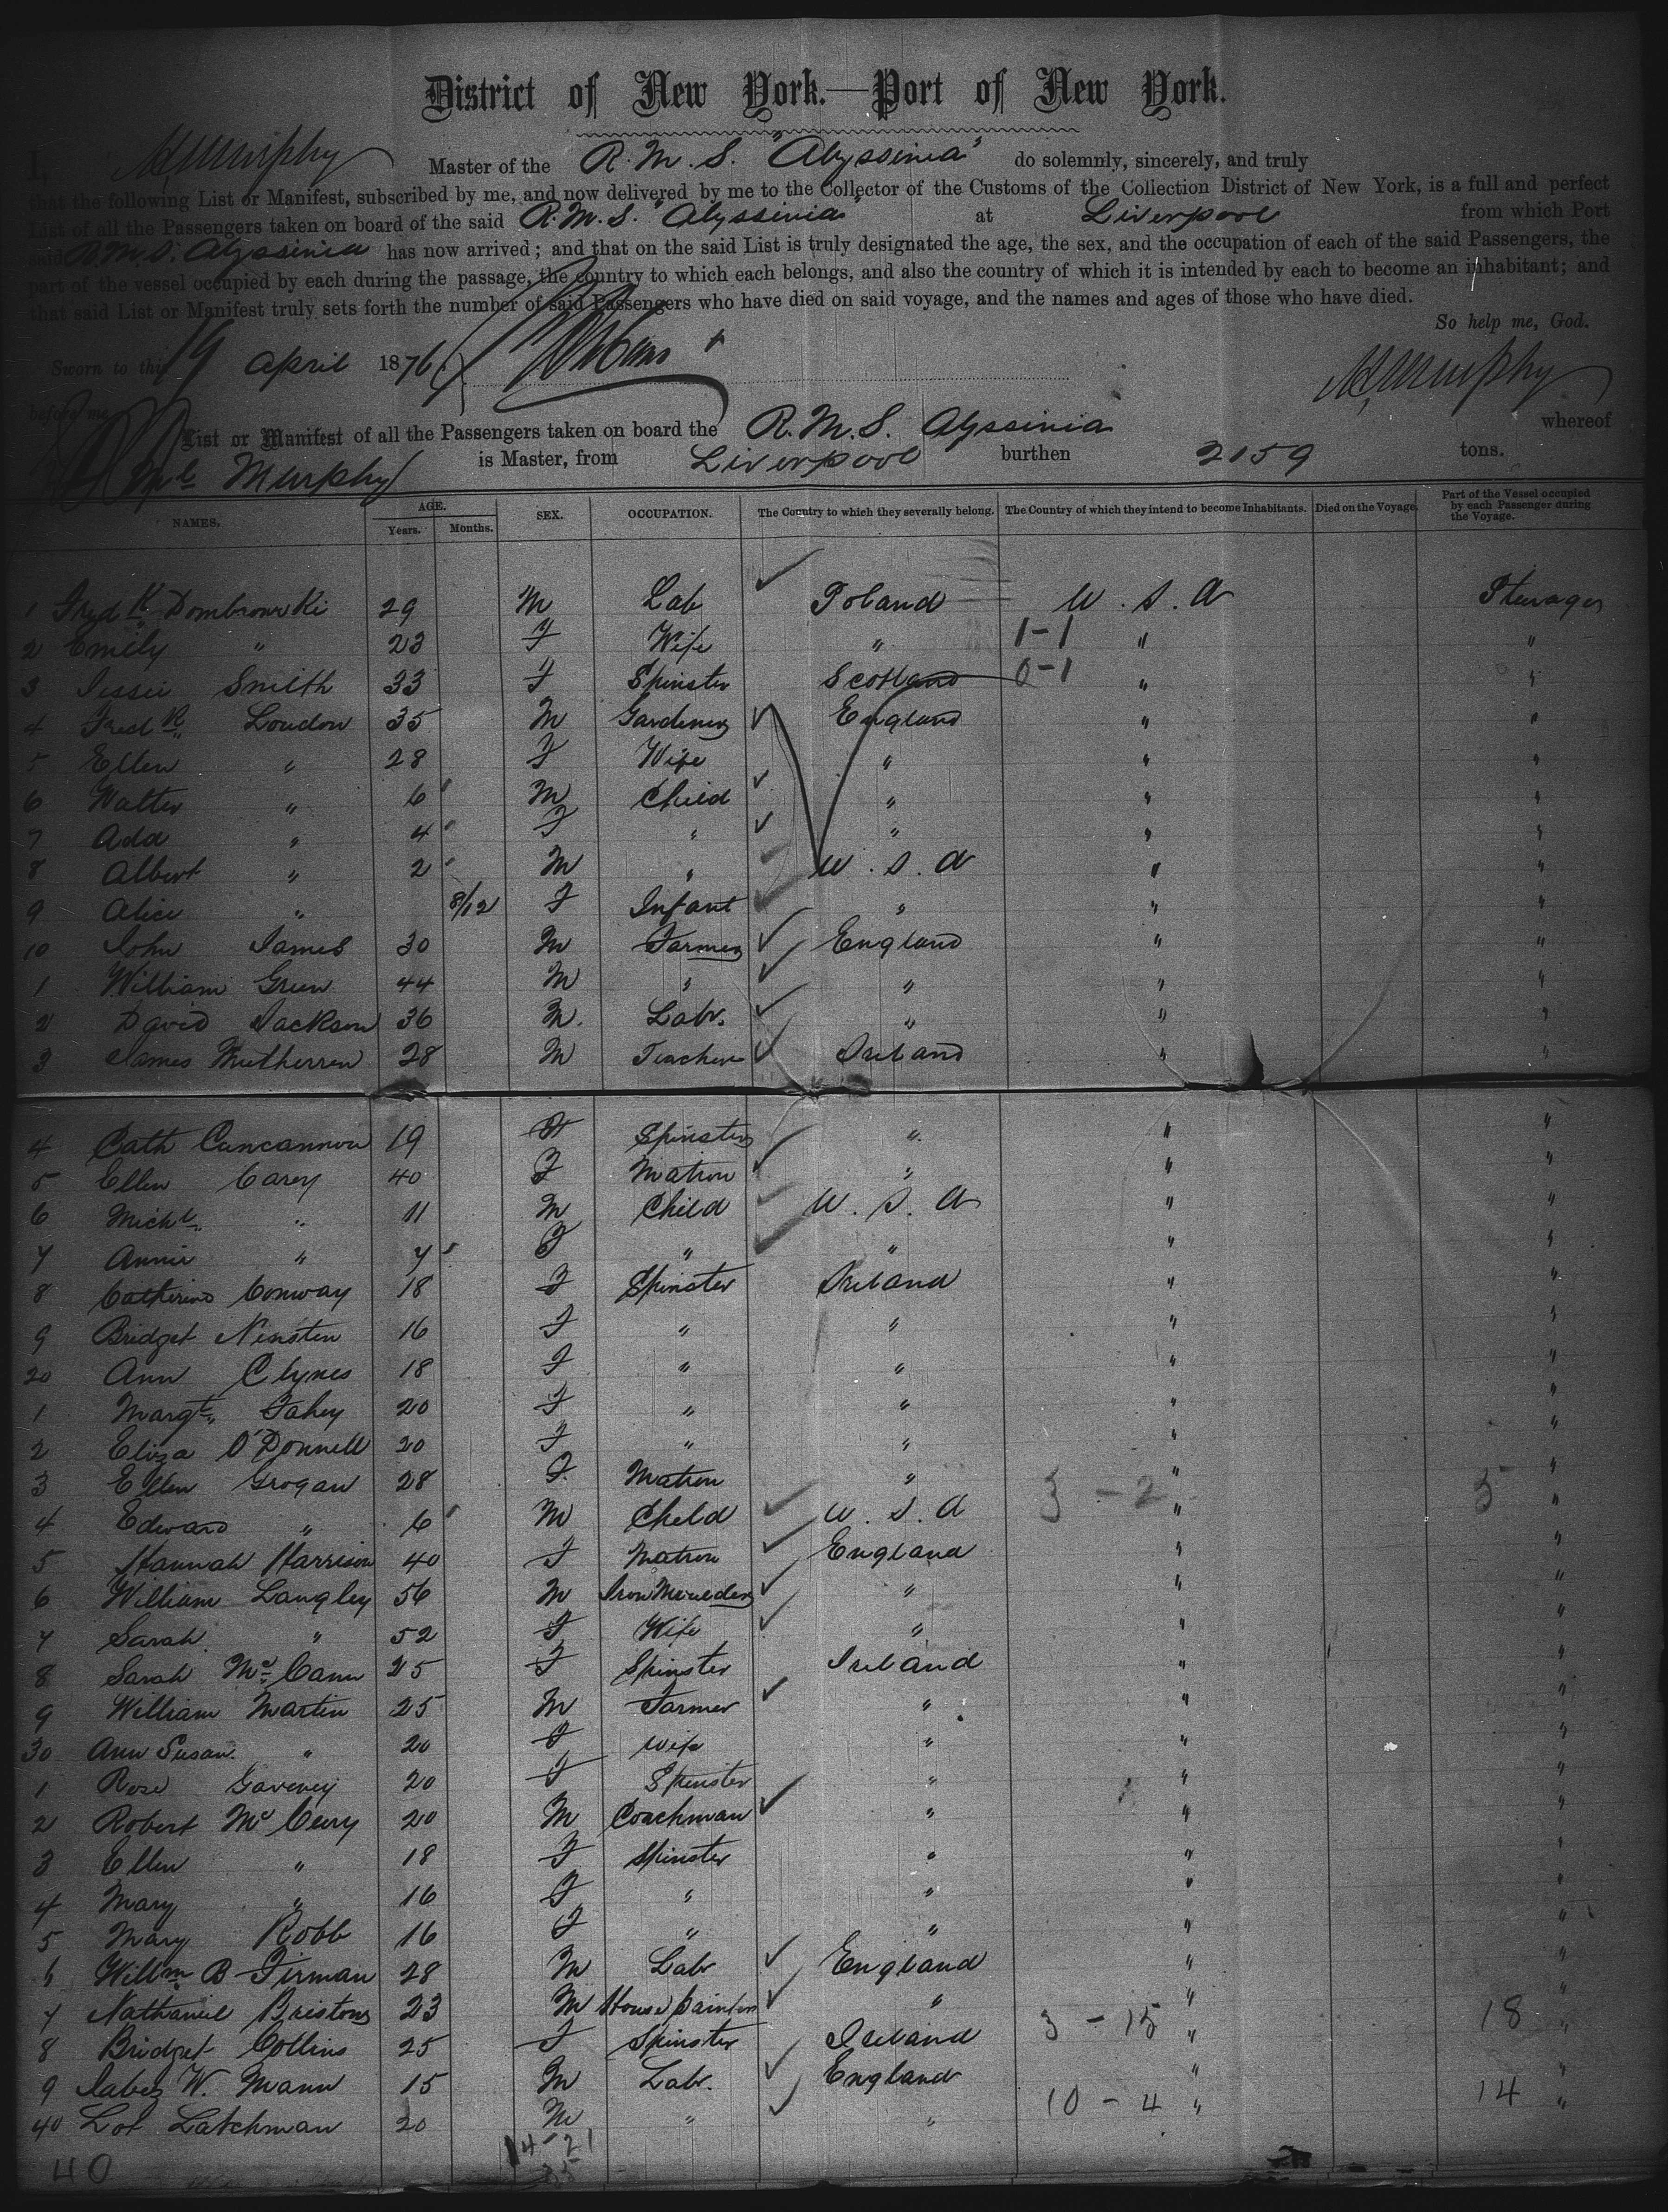 District of New York.—Port of New York.
I, M Murphy Master of the R.M.S. "Abyssinia" do solemnly, sincerely, and truly
that the following List or Manifest, subscribed by me, and now delivered by me to the Collector of the Customs of the Collection District of New York, is a full and perfect
List of all the Passengers taken on board of the said R.M.S. "Abyssinia" at Liverpool from which Port
said R.M.S. Abyssinia has now arrived; and that on the said List is truly designated the age, the sex, and the occupation of each of the said Passengers, the
part of the vessel occupied by each during the passage, the country to which each belongs, and also the country of which it is intended by each to become an inhabitant; and
that said List or Manifest truly sets forth the number of said Passengers who have died on said voyage, and the names and ages of those who have died.
So help me, God.
Sworn to this 19 April 1876 M Murphy
before me
List or Manifest of all the Passengers taken on board the R.M.S. Abyssinia whereof
Murphy is Master, from Liverpool burthen 2159 tons.
NAMES. AGE. Years. Months. SEX. OCCUPATION. The Country to which they severally belong. The Country of which they intend to become Inhabitants. Died on the Voyage. Part of the Vessel occupied by each Passenger during the Voyage.
1 Fredk Dombrowski 29 M Lab Poland U.S.A Steerage
2 Emily " 23 F Wife " 1-1 " "
3 Jessie Smith 33 F Spinster Scotland 0-1 " "
4 Fredk Loudon 35 M Gardener England " "
5 Ellen " 28 F Wife " " "
6 Walter " 6 M Child " " "
7 Ada " 4 F " " " "
8 Albert " 2 M " U.S.A " "
9 Alice " 8/12 F Infant " " "
10 John James 30 M Farmer England " "
1 William Green 44 M " " " "
2 David Jackson 36 M. Labr. " " "
3 James 28 M Teacher Ireland " "
4 Cath Concannon 19 F Spinster " " "
5 Ellen Carey 40 F Matron " " "
6 Michl " 11 M Child U.S.A " "
7 Annie " 7 F " " " "
8 Catherine Conway 18 F Spinster Ireland " "
9 Bridget 16 F " " " "
20 Ann Clynes 18 F " " " "
1 Margt Fahey 20 F " " " "
2 Eliza O'Donnell 20 F " " " "
3 Ellen Grogan 28 F. Matron " 3-2 " 5 "
4 Edward " 6 M Child U.S.A " "
5 Hannah Harrison 40 F Matron England " "
6 William Langley 56 M Iron Moulder " " "
7 Sarah " 52 F Wife " " "
8 Sarah McCann 25 F Spinster Ireland " "
9 William Martin 25 M Farmer " " "
30 Ann Susan " 20 F Wife " " "
1 Rose Gaveney 20 F Spinster " " "
2 Robert McCleary 20 M Coachman " " "
3 Ellen " 18 F Spinster " " "
4 Mary " 16 F " " " "
5 Mary Robb 16 F " " " "
6 Willm B Firman 28 M Labr England " "
7 Nathaniel Bristow 23 M House painter " " "
8 Bridget Collins 25 F Spinster Ireland 3-15 " 18 "
9 Jabez W. Mann 15 M Labr. England " "
40 Lot Latchman 20 M " " 10-4 " 14 "
14-21
35
40